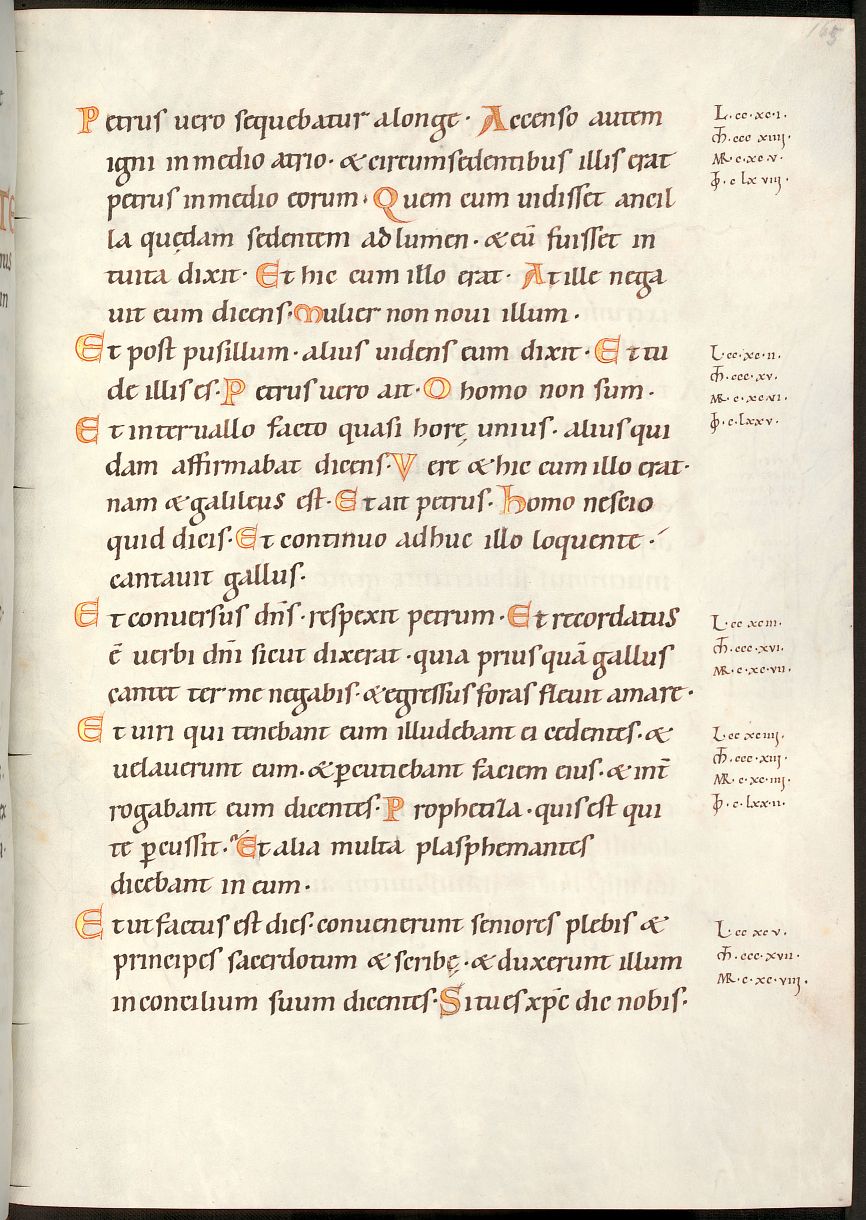 165
Petrus uero sequebatur alonge · Accenso autem
L · cc · xc · i ·
igni inmedio atrio · & circumsedentibus illis erat
petrus inmedio eorum · Quem cum uidisset ancil
la quędam sedentem ad lumen · & eū fuisset in
tuita dixit · Et hic cum illo erat · At ille nega
uit eum dicens · Mulier non noui illum ·
Et post pusillum · alius uidens eum dixit · Et tu
L · cc · xc · ii ·
de illis es · Petrus uero ait · O homo non sum ·
Et interuallo facto quasi horę unius · alius qui
dam affirmabat dicens · Vere & hic cum illo erat ·
nam & galileus est · Et ait petrus · Homo nescio
quid dicis · Et continuo adhuc illo loquente ·
cantauit gallus ·
Et conuersus dn̄s · respexit petrum · Et recordatus
L · cc xciii ·
ē uerbi dn̄i sicut dixerat · quia prius quā gallus
cantet ter me negabis · & egressus foras fleuit amare ·
Et uiri qui tenebant eum illudebant ei cedentes · &
L · cc xciiii ·
uelauerunt eum · & ꝑcutiebant faciem eius · & int̄
rogabant eum dicentes · Prophetiza · quis est qui
te ꝑcussit · Et alia multa plasphemantes
dicebant in eum ·
Et ut factus est dies · conuenerunt seniores plebis &
L · cc xc v ·
principes sacerdotum & scribę · & duxerunt illum
in concilium suum dicentes · Si tu es xp̄c dic nobis ·